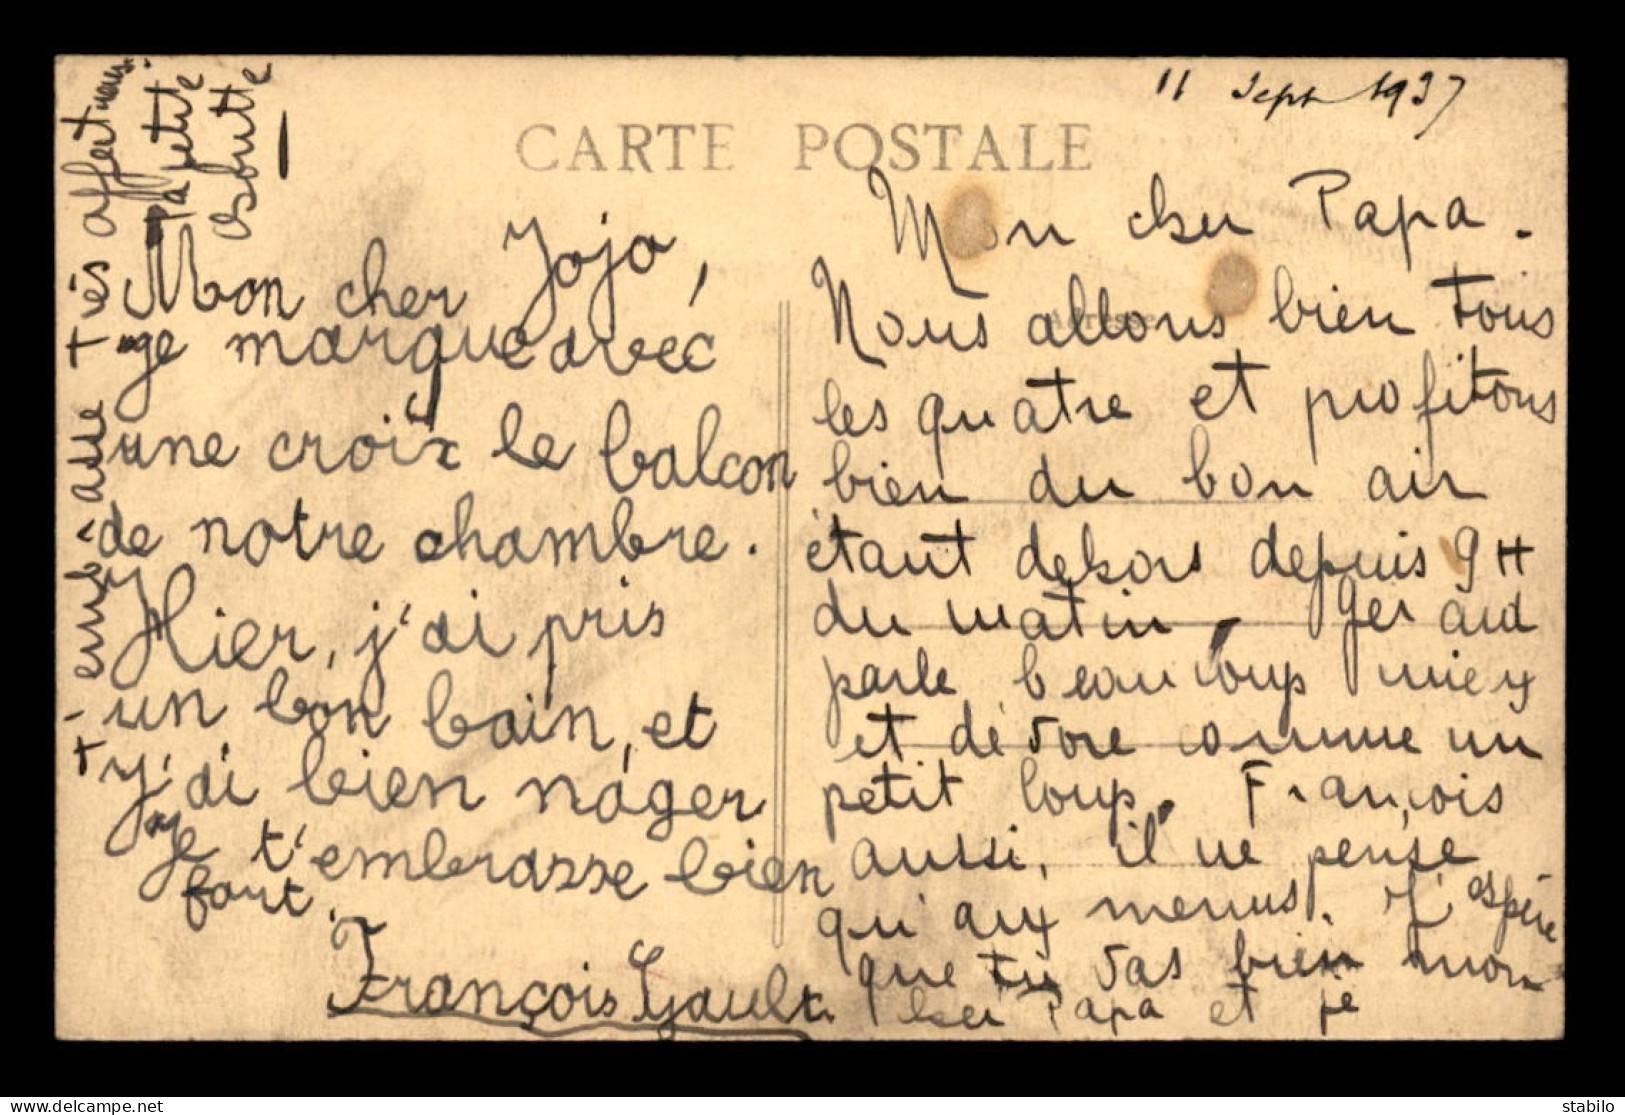 11 Sept 1937
CARTE POSTALE
Mon cher Jojo,
ge marque avec
une croix le balcon
de notre chambre.
Hier, j'ai pris
un bon bain, et
j'ai bien nager
je t'embrasse bien
fort.
François Gault
Mon cher Papa.
Adresse
Nous allons bien tous
les quatre et profitons
bien du bon air
étant dehors depuis 9H
du matin. Gérard
parle beaucoup mieux
et dévore comme un
petit loup. François
aussi, il ne pense
qu'aux menus. J'espère
que tu vas bien mon
cher Papa et je
t'embrasse très affect
ta petite
stabilo